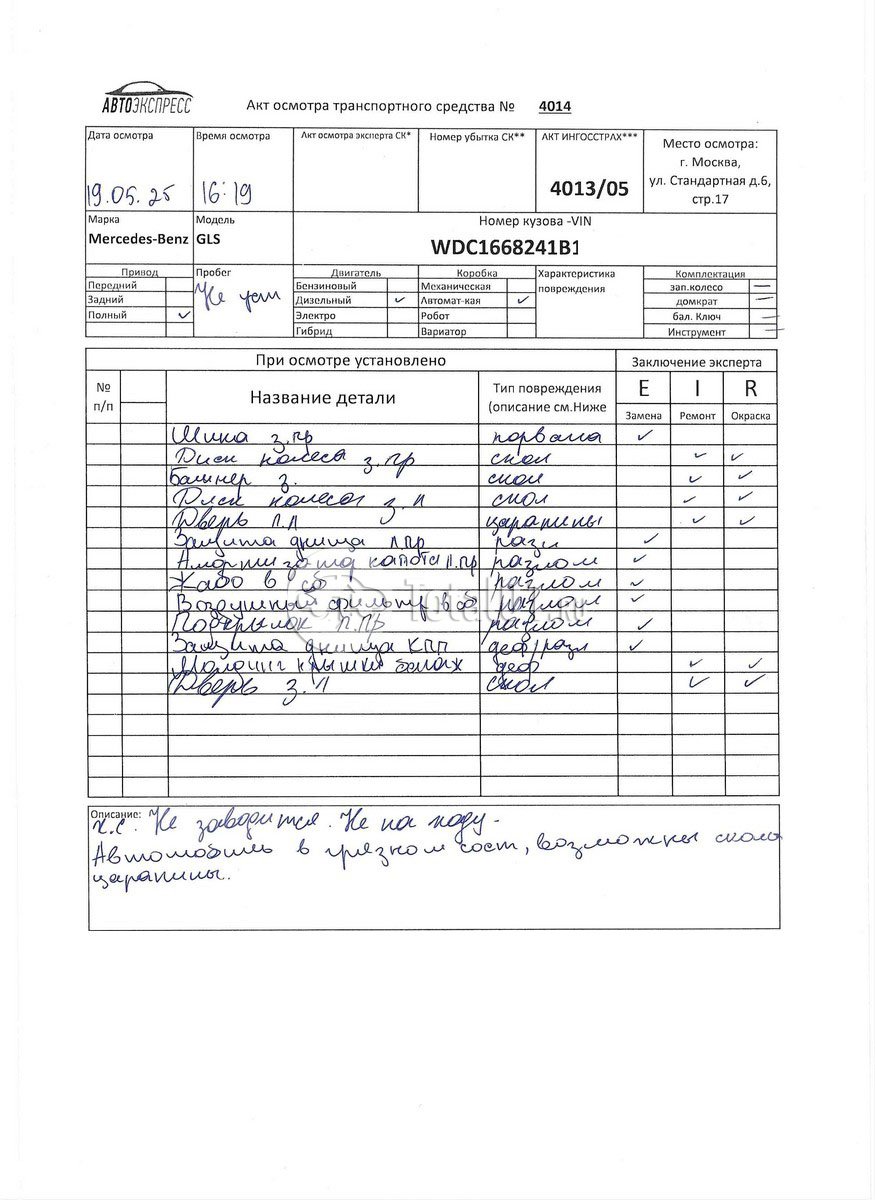 АВТОЭКСПРЕСС
Акт осмотра транспортного средства № 4014
Дата осмотра Время осмотра Акт осмотра эксперта СК* Номер убытка СК** АКТ ИНГОССТРАХ*** Место осмотра:
г. Москва,
19.05.25 16:19 4013/05 ул. Стандартная д.6,
стр.17
Марка Модель Номер кузова -VIN
Mercedes-Benz GLS WDC1668241B1
Привод Пробег Двигатель Коробка Характеристика Комплектация
Передний Не уст Бензиновый Механическая повреждения зап.колесо —
Задний Дизельный ✓ Автомат-кая ✓ домкрат —
Полный ✓ Электро Робот бал. Ключ —
Гибрид Вариатор Инструмент —
При осмотре установлено Заключение эксперта
№ п/п Название детали Тип повреждения (описание см.Ниже E I R
Замена Ремонт Окраска
Шина з.пр порвана ✓
Диск колеса з.пр скол ✓ ✓
Бампер з. скол ✓ ✓
Диск колеса з л скол ✓ ✓
Дверь п.л царапины ✓ ✓
Защита днища п.пр разл ✓
Амортизатор капота п.пр разлом ✓
Жабо в сб разлом ✓
Воздушный фильтр в сб разлом ✓
Подкрылок п.пр разлом ✓
Защита днища КПП деф/разл ✓
Молдинг крышки багаж деф ✓ ✓
Дверь з.л скол ✓ ✓
Описание: х.с. Не заводится. Не на ходу.
Автомобиль в грязном сост, возможны сколы
царапины.